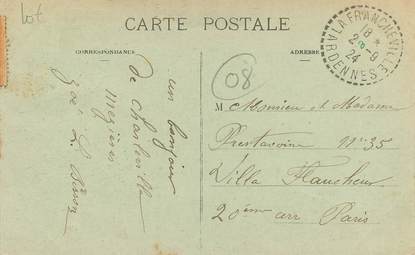 Lot
CARTE POSTALE
CORRESPONDANCE
ADRESSE
LA FRANCHEVILLE
18 *
2-9
24
ARDENNES
08
un bonjour
de Charleville
Mézières
Zoé L.
M. Monsieur et Madame
Prestavoine Nº 35
Villa Faucheur
20ème arr Paris